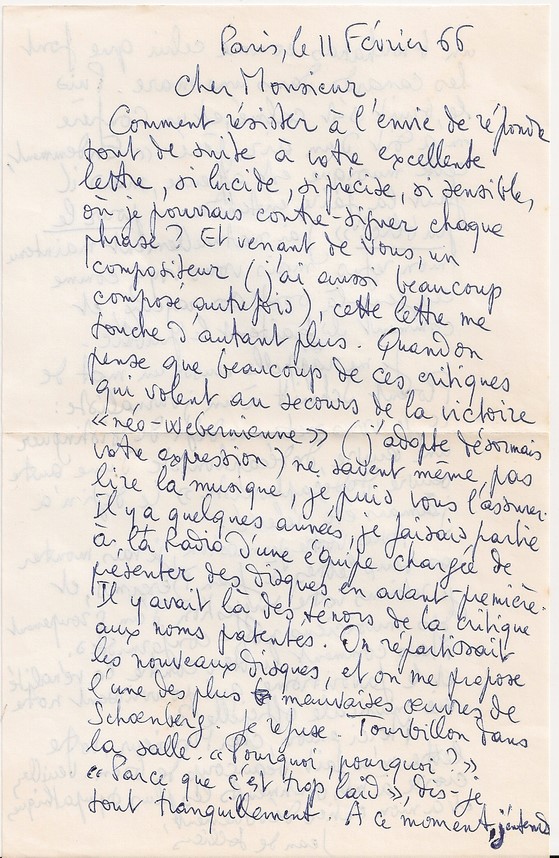 Paris, le 11 Février 66
Cher Monsieur
Comment résister à l'envie de répondre
tout de suite à votre excellente
lettre, si lucide, si précise, si sensible,
où je pourrais contre-signer chaque
phrase ? Et venant de vous, un
compositeur (j'ai aussi beaucoup
composé autrefois), cette lettre me
touche d'autant plus. Quand on
pense que beaucoup de ces critiques
qui volent au secours de la victoire
« néo-Webernienne » (j'adopte désormais
votre expression) ne savent même pas
lire la musique, je puis vous l'assurer.
Il y a quelques années, je faisais partie
à la Radio d'une équipe chargée de
présenter des disques en avant-première.
Il y avait là des ténors de la critique
aux noms patentés. On répartissait
les nouveaux disques, et on me propose
l'une des plus mauvaises œuvres de
Schœnberg. Je refuse. Tourbillon dans
la salle. « Pourquoi, pourquoi ? »
« Parce que c'est trop laid » dis-je
tout tranquillement. A ce moment, j'entends